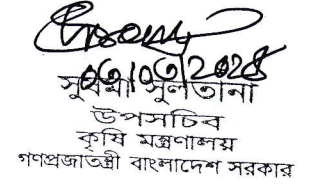 ০৩/০৩/২০২৪
সুবর্ণা সুলতানা
উপসচিব
কৃষি মন্ত্রণালয়
গণপ্রজাতন্ত্রী বাংলাদেশ সরকার